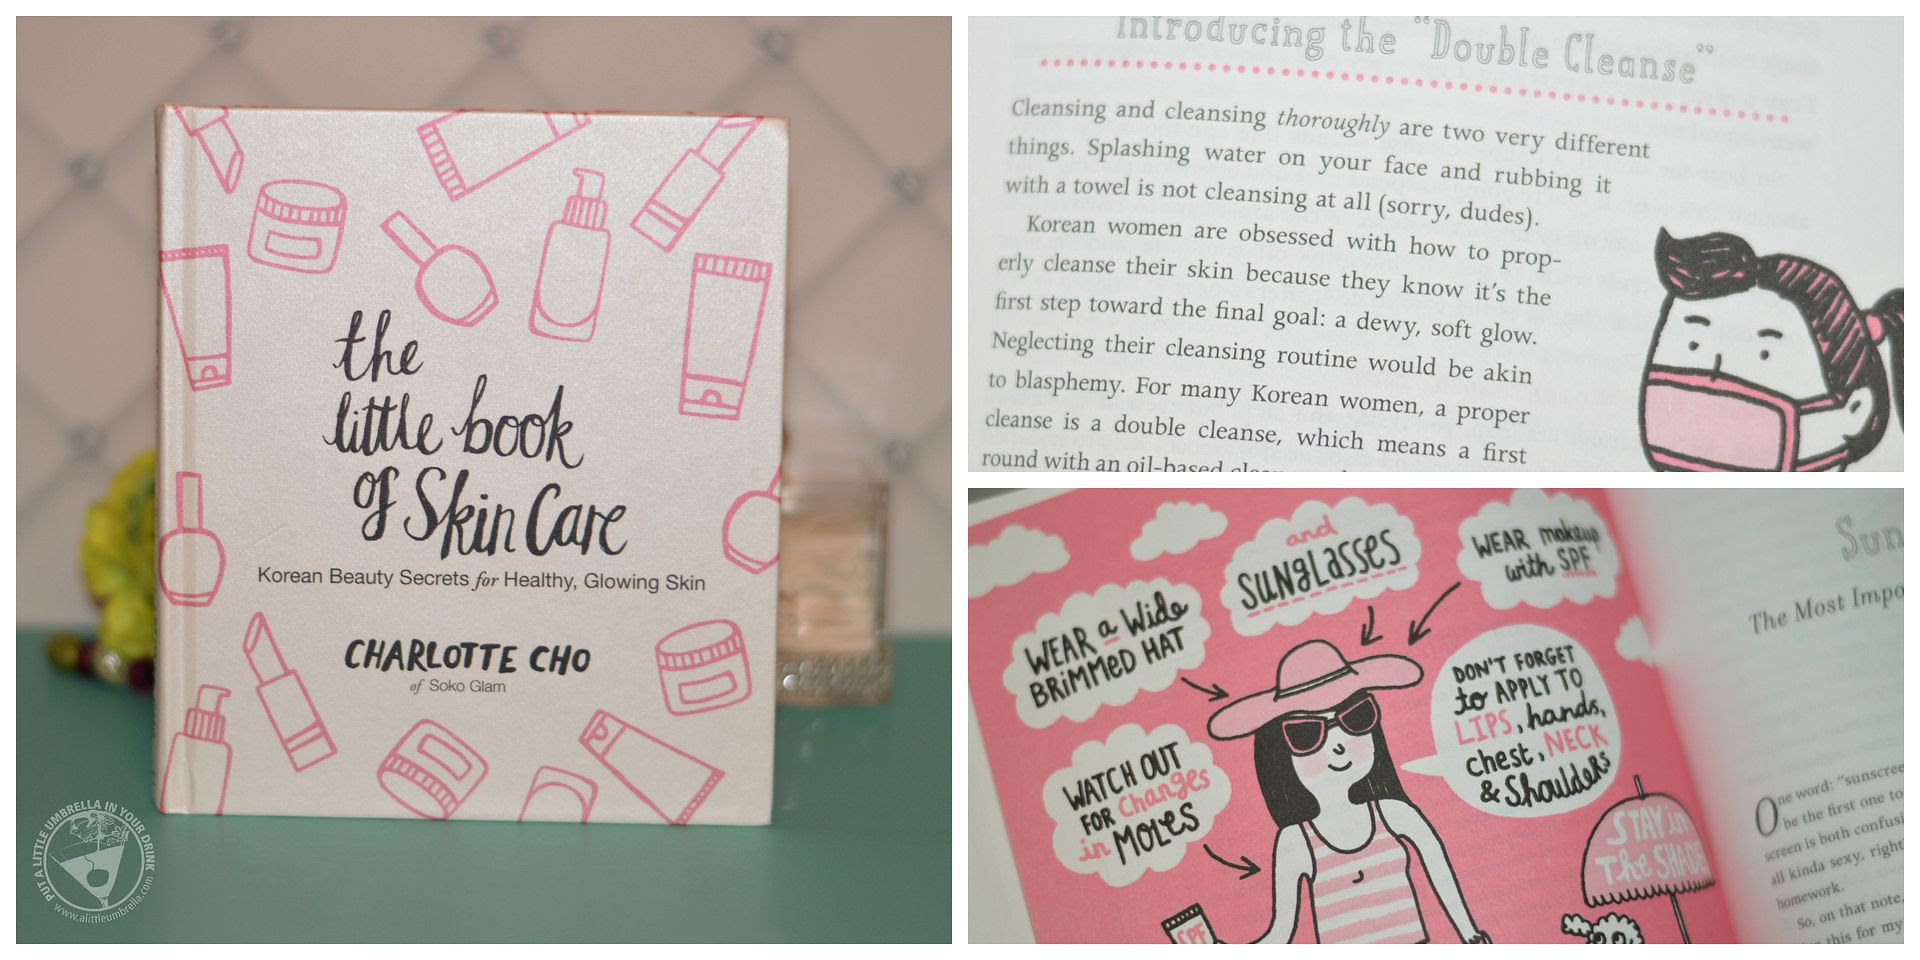 the
little book
of Skin Care
Korean Beauty Secrets for Healthy, Glowing Skin
CHARLOTTE CHO
of Soko Glam
PUT A LITTLE UMBRELLA IN YOUR DRINK
www.alittleumbrella.com
Introducing the “Double Cleanse”
Cleansing and cleansing thoroughly are two very different
things. Splashing water on your face and rubbing it
with a towel is not cleansing at all (sorry, dudes).
Korean women are obsessed with how to prop-
erly cleanse their skin because they know it's the
first step toward the final goal: a dewy, soft glow.
Neglecting their cleansing routine would be akin
to blasphemy. For many Korean women, a proper
cleanse is a double cleanse, which means a first
round with an oil-based
and
SUNGLASSES
WEAR makeup
with SPF
WEAR a Wide
BRIMMED HAT
DON'T FORGET
to APPLY TO
LIPS, hands,
chest, NECK
& Shoulders
WATCH OUT
FOR changes
in MOLES
STAY in
The SHADE
SPF
Sun
The Most Impo
One word: “sunscree
be the first one to
screen is both confusi
all kinda sexy, right
homework.
So, on that note,
this for my